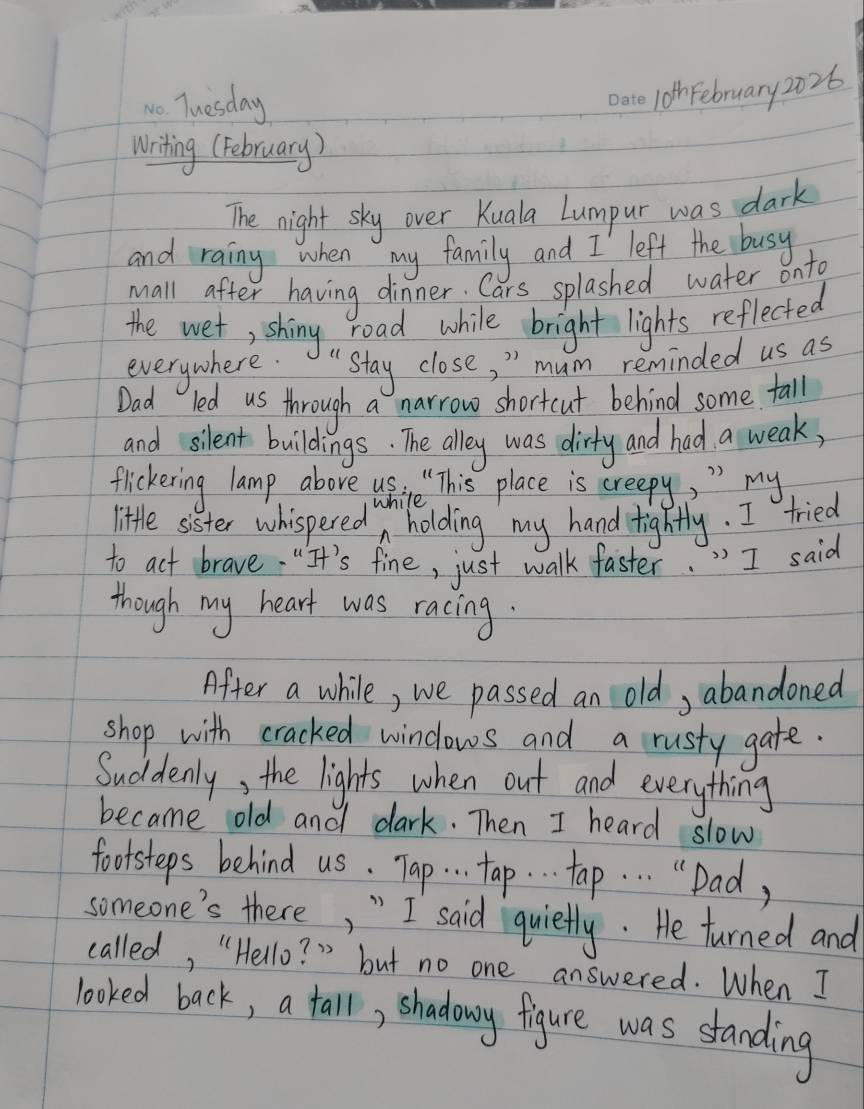 No. Tuesday
Date 10th February 2026
Writing (February)
The night sky over Kuala Lumpur was dark
and rainy when my family and I left the busy
mall after having dinner. Cars splashed water onto
the wet, shiny road while bright lights reflected
everywhere. "Stay close," mum reminded us as
Dad led us through a narrow shortcut behind some tall
and silent buildings. The alley was dirty and had a weak,
flickering lamp above us. "This place is creepy," my
little sister whispered while holding my hand tightly. I tried
to act brave. "It's fine, just walk faster." I said
though my heart was racing.
After a while, we passed an old, abandoned
shop with cracked windows and a rusty gate.
Suddenly, the lights when out and everything
became old and dark. Then I heard slow
footsteps behind us. Tap... tap... tap... "Dad,
someone's there," I said quietly. He turned and
called, "Hello?" but no one answered. When I
looked back, a tall, shadowy figure was standing